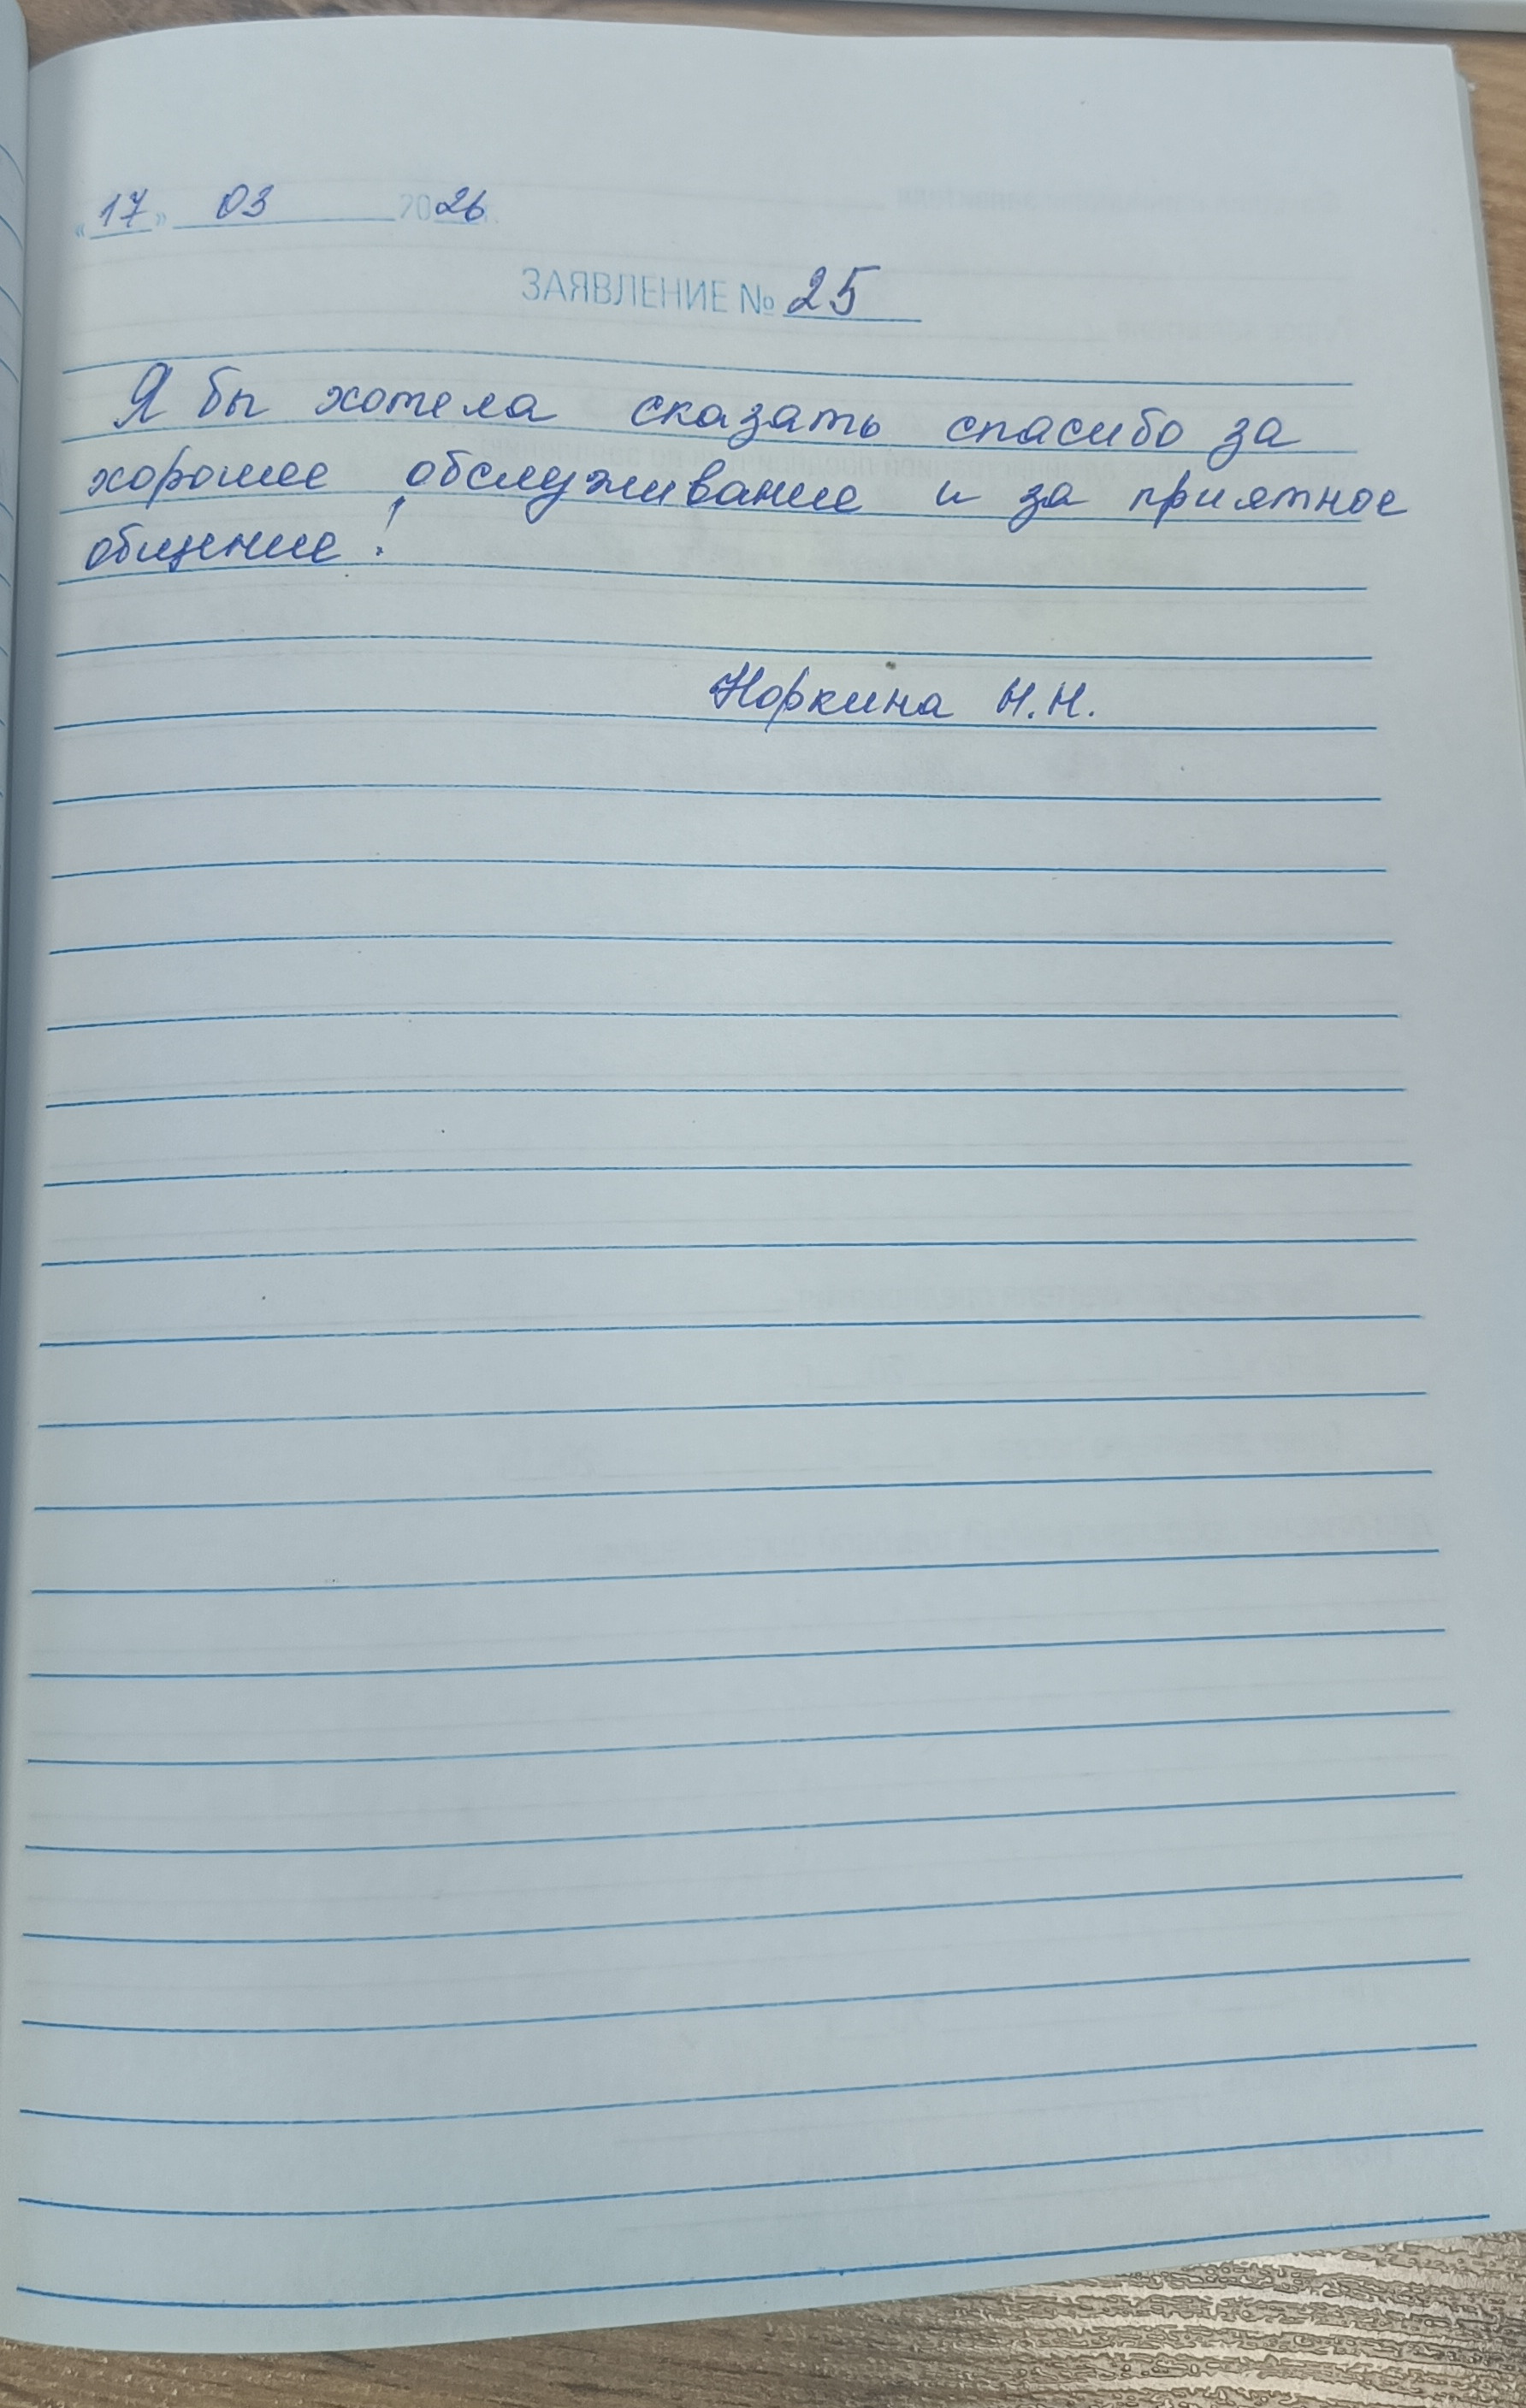 «17» 03 2026 г.
ЗАЯВЛЕНИЕ № 25
Я бы хотела сказать спасибо за
хорошее обслуживание и за приятное
общение!
Норкина Н.Н.